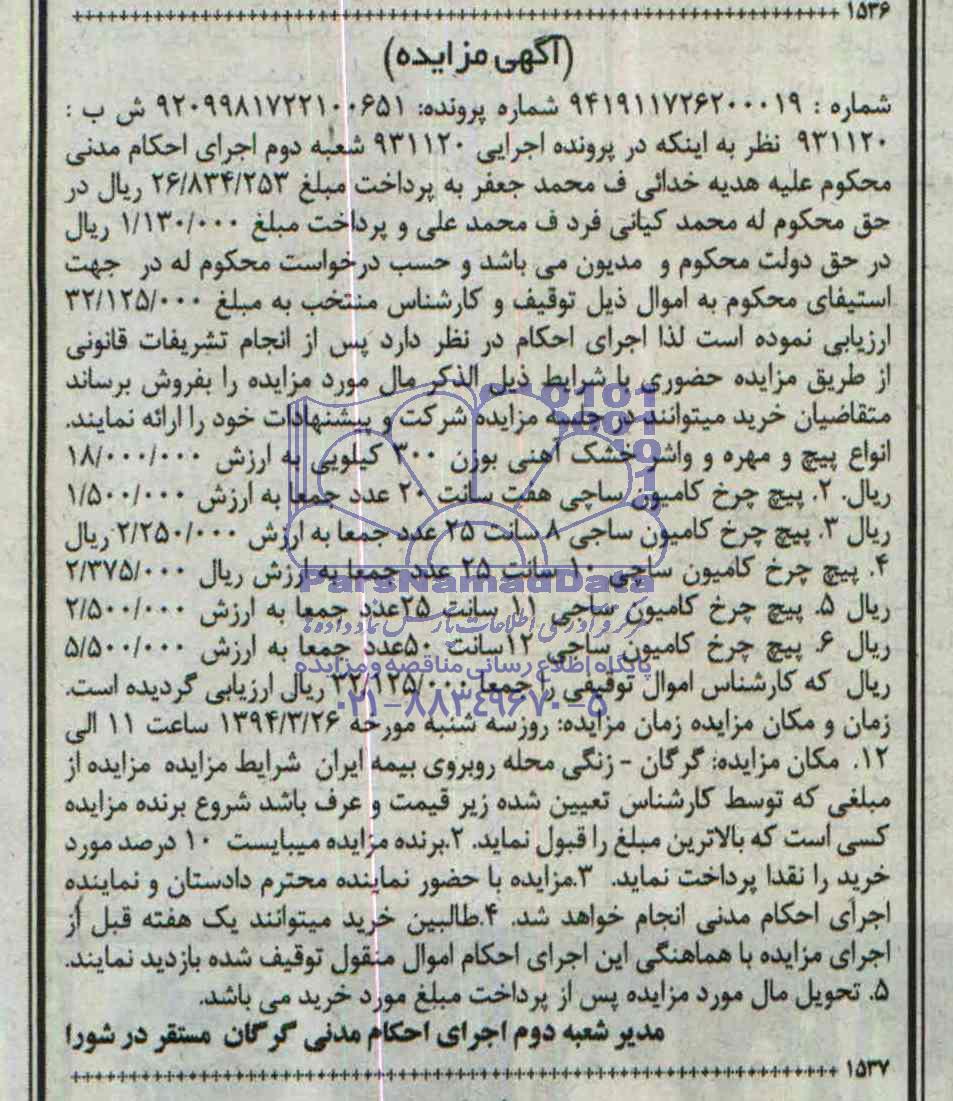 ۱۵۳۶
(آگهی مزایده)
شماره : ۹۴۱۹۱۱۷۲۶۲۰۰۰۱۹ شماره پرونده: ۹۲۰۹۹۸۱۷۲۲۱۰۰۶۵۱ ش ب :
۹۳۱۱۲۰ نظر به اینکه در پرونده اجرایی ۹۳۱۱۲۰ شعبه دوم اجرای احکام مدنی
محکوم علیه هدیه خدائی ف محمد جعفر به پرداخت مبلغ ۲۶/۸۳۴/۲۵۳ ریال در
حق محکوم له محمد کیانی فرد ف محمد علی و پرداخت مبلغ ۱/۱۳۰/۰۰۰ ریال
در حق دولت محکوم و مدیون می باشد و حسب درخواست محکوم له در جهت
استیفای محکوم به اموال ذیل توقیف و کارشناس منتخب به مبلغ ۳۲/۱۲۵/۰۰۰
ارزیابی نموده است لذا اجرای احکام در نظر دارد پس از انجام تشریفات قانونی
از طریق مزایده حضوری با شرایط ذیل الذکر مال مورد مزایده را بفروش برساند
متقاضیان خرید میتوانند در جلسه مزایده شرکت و پیشنهادات خود را ارائه نمایند.
انواع پیچ و مهره و واشر خشک آهنی بوزن ۳۰۰ کیلویی به ارزش ۱۸/۰۰۰/۰۰۰
ریال. ۲. پیچ چرخ کامیون ساچی هفت سانت ۲۰ عدد جمعا به ارزش ۱/۵۰۰/۰۰۰
ریال ۳. پیچ چرخ کامیون ساجی ۸ سانت ۲۵ عدد جمعا به ارزش ۲/۲۵۰/۰۰۰ ریال
۴. پیچ چرخ کامیون ساچی ۱۰ سانت ۲۵ عدد جمعا به ارزش ریال ۲/۳۷۵/۰۰۰
ریال ۵. پیچ چرخ کامیون ساچی ۱۱ سانت ۲۵عدد جمعا به ارزش ۲/۵۰۰/۰۰۰
ریال ۶. پیچ چرخ کامیون ساچی ۱۲سانت ۵۰عدد جمعا به ارزش ۵/۵۰۰/۰۰۰
ریال که کارشناس اموال توقیفی را جمعا ۳۲/۱۲۵/۰۰۰ ریال ارزیابی گردیده است.
زمان و مکان مزایده زمان مزایده: روزسه شنبه مورخه ۱۳۹۴/۳/۲۶ ساعت ۱۱ الی
۱۲. مکان مزایده: گرگان - زنگی محله روبروی بیمه ایران شرایط مزایده مزایده از
مبلغی که توسط کارشناس تعیین شده زیر قیمت و عرف باشد شروع برنده مزایده
کسی است که بالاترین مبلغ را قبول نماید. ۲.برنده مزایده میبایست ۱۰ درصد مورد
خرید را نقدا پرداخت نماید. ۳.مزایده با حضور نماینده محترم دادستان و نماینده
اجرای احکام مدنی انجام خواهد شد. ۴.طالبین خرید میتوانند یک هفته قبل از
اجرای مزایده با هماهنگی این اجرای احکام اموال منقول توقیف شده بازدید نمایند.
۵. تحویل مال مورد مزایده پس از پرداخت مبلغ مورد خرید می باشد.
مدیر شعبه دوم اجرای احکام مدنی گرگان مستقر در شورا
۱۵۳۷
ParsNamadData
پایگاه اطلاع رسانی مناقصه و مزایده
۰۲۱-۸۸۳٤۹۶۷۰-۵